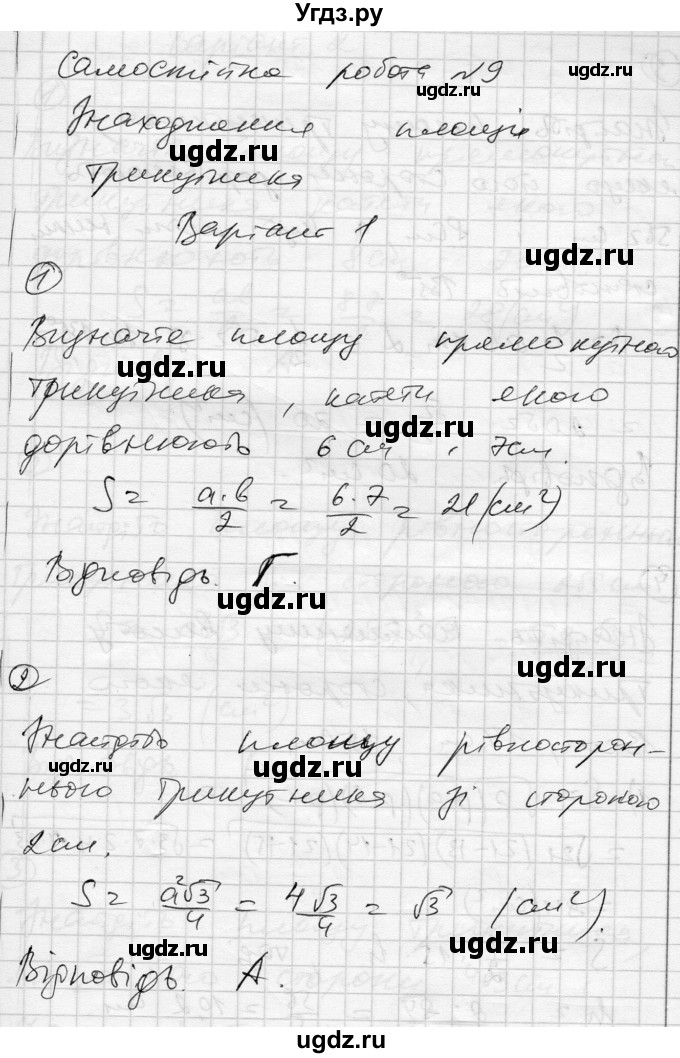 Угдз.ру
Самостійна робота №9
Знаходження площі
трикутника
Варіант 1
1
Визначте площу прямокутного
трикутника, катети якого
дорівнюють 6 см і 7 см.
S = a·b/2 = 6·7/2 = 21 (см²)
Відповідь. Г.
2
Знайдіть площу рівносторон-
нього трикутника зі стороною
2 см.
S = a²√3/4 = 4√3/4 = √3 (см²).
Відповідь. А.
ugdz.ru
ugdz.ru
ugdz.ru
ugdz.ru
ugdz.ru
ugdz.ru
ugdz.ru
ugdz.ru
ugdz.ru
ugdz.ru
ugdz.ru
ugdz.ru
ugdz.ru
ugdz.ru